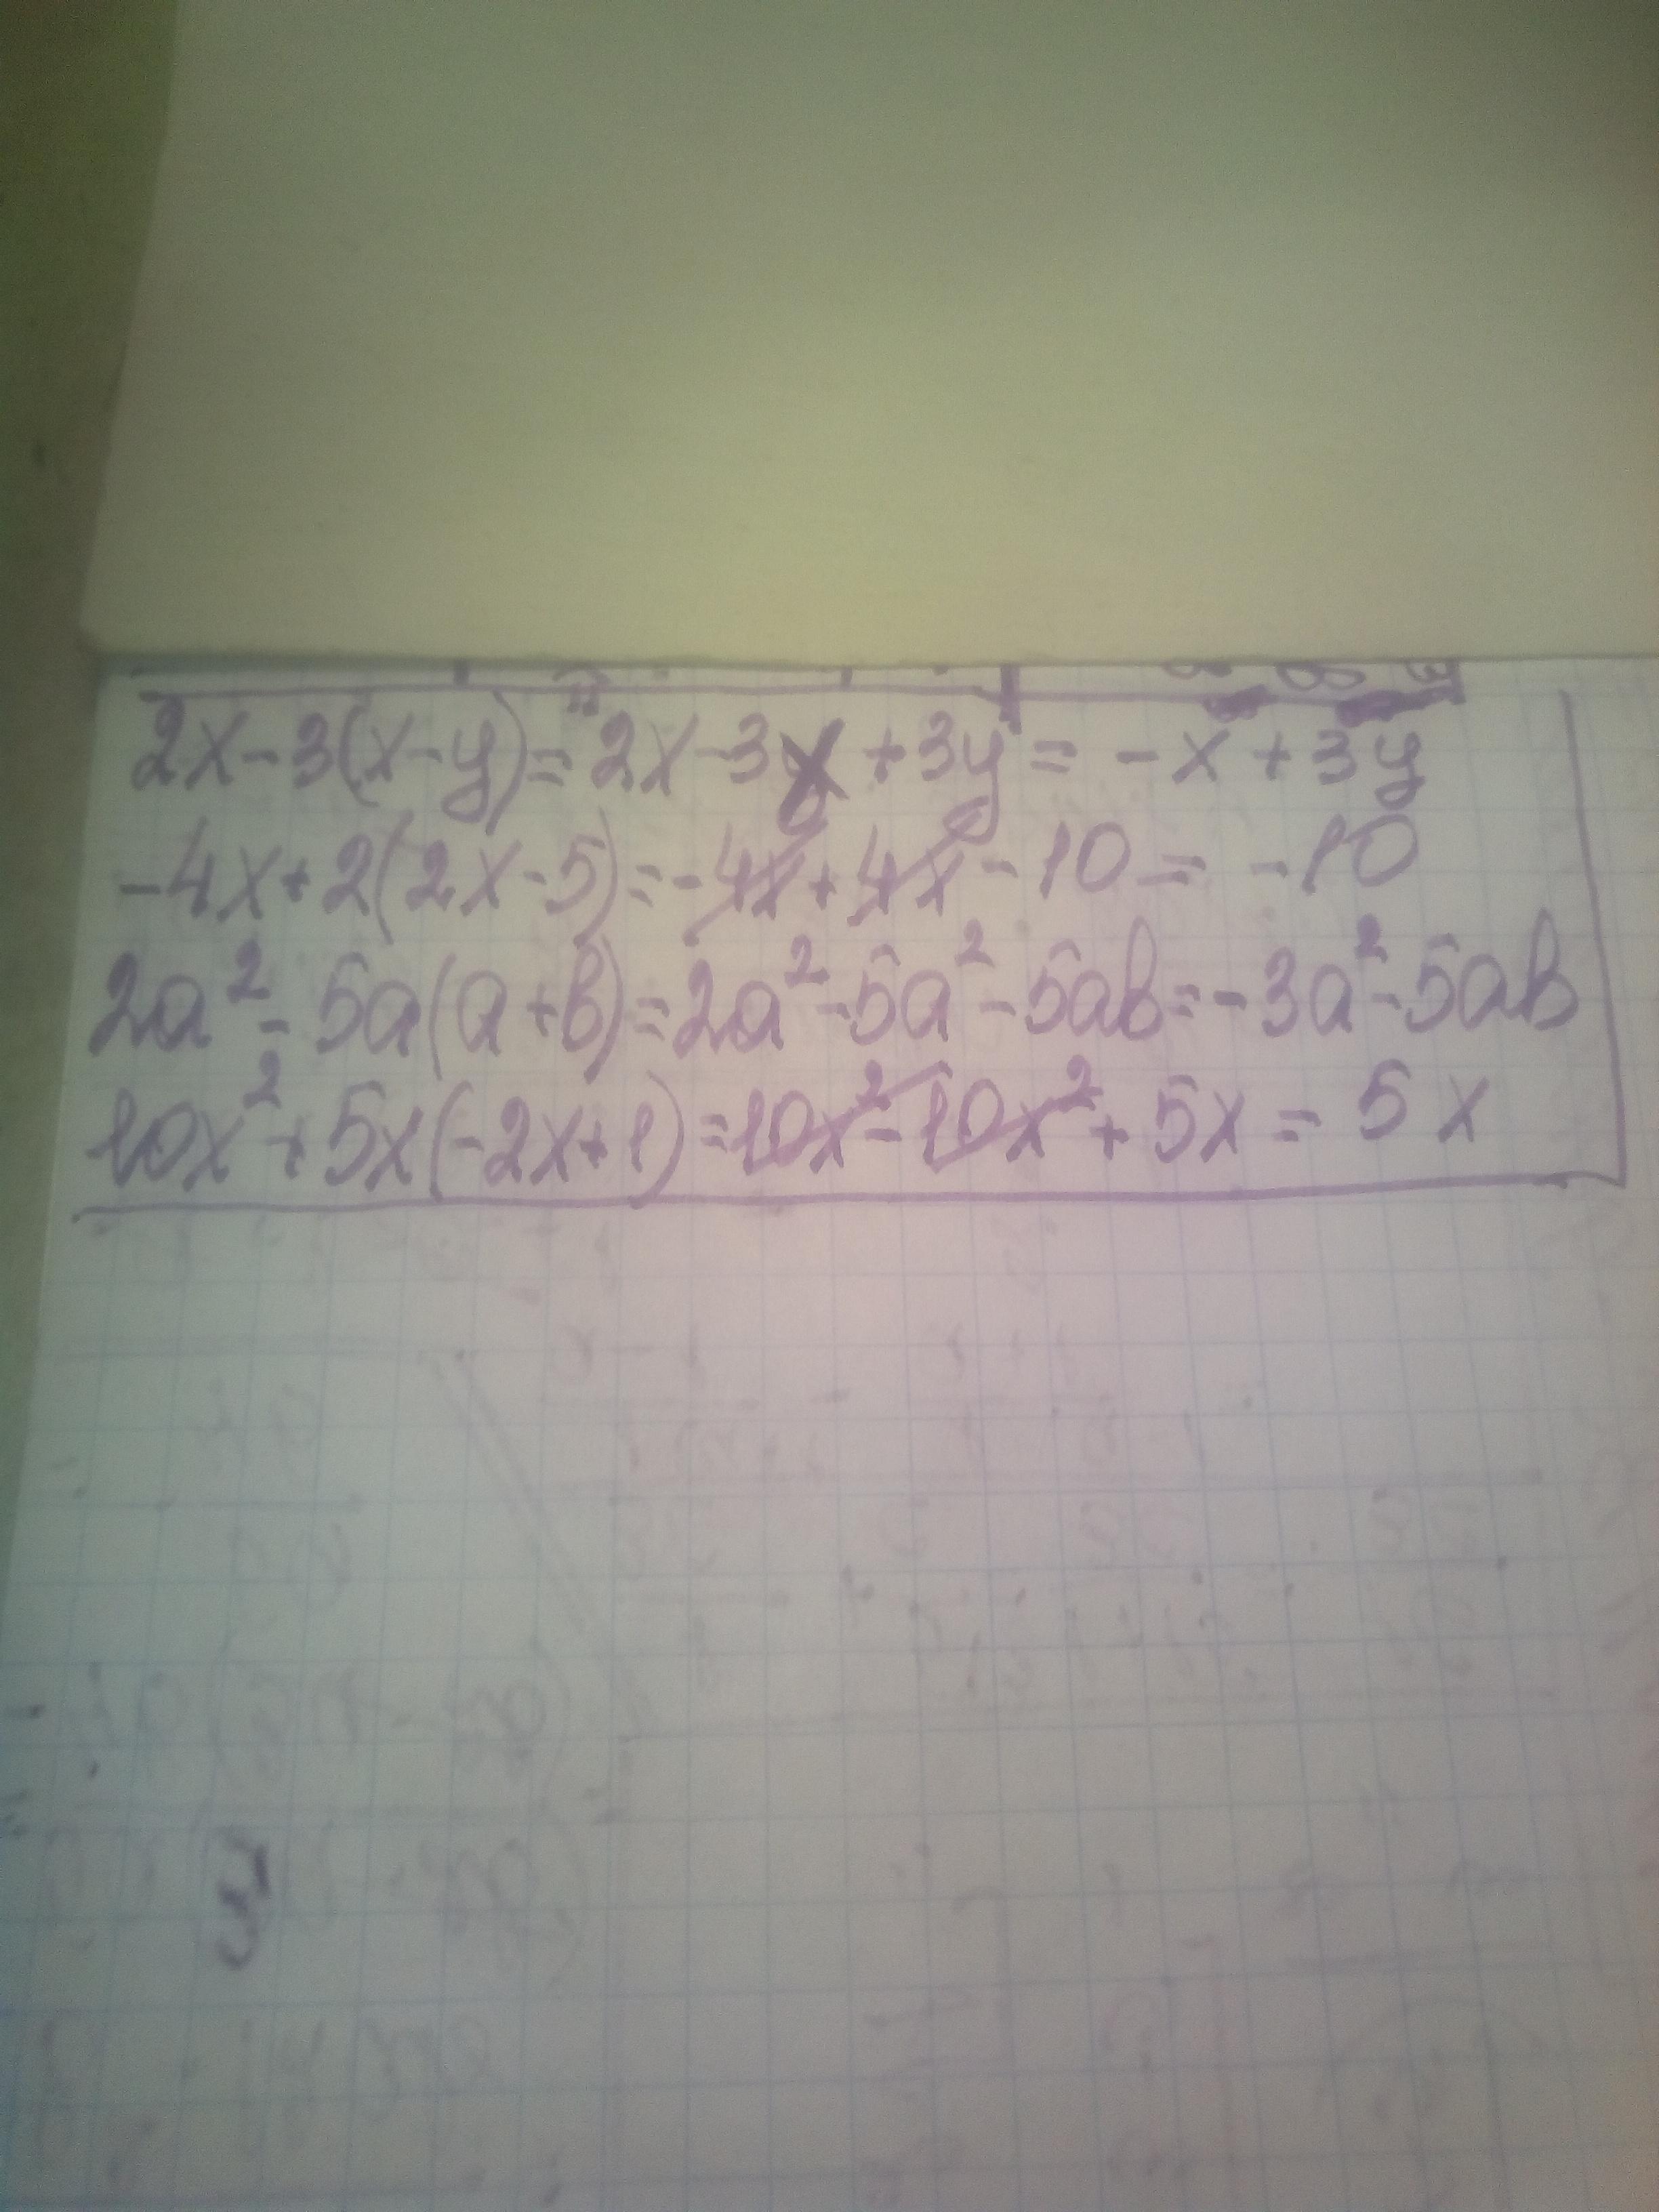 2x-3(x-y)=2x-3x+3y=-x+3y
-4x+2(2x-5)=-4x+4x-10=-10
2a²-5a(a+b)=2a²-5a²-5ab=-3a²-5ab
10x²+5x(-2x+1)=10x²-10x²+5x=5x